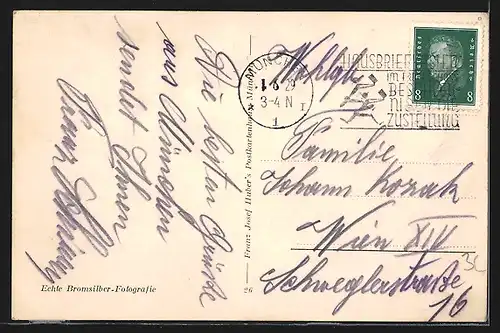 Die besten Grüße
aus München
sendet Ihnen
Echte Bromsilber-Fotografie
26
Franz Josef Huber's Postkartenhaus, München
MÜNCHEN
29
3-4 N
1
HAUSBRIEF
IM
BE
ZUSTELLUNG
Deutsches Reich
8 8
Wohlgb.
Familie
Johann Kozak
Wien XIV
Schweglerstraße
16